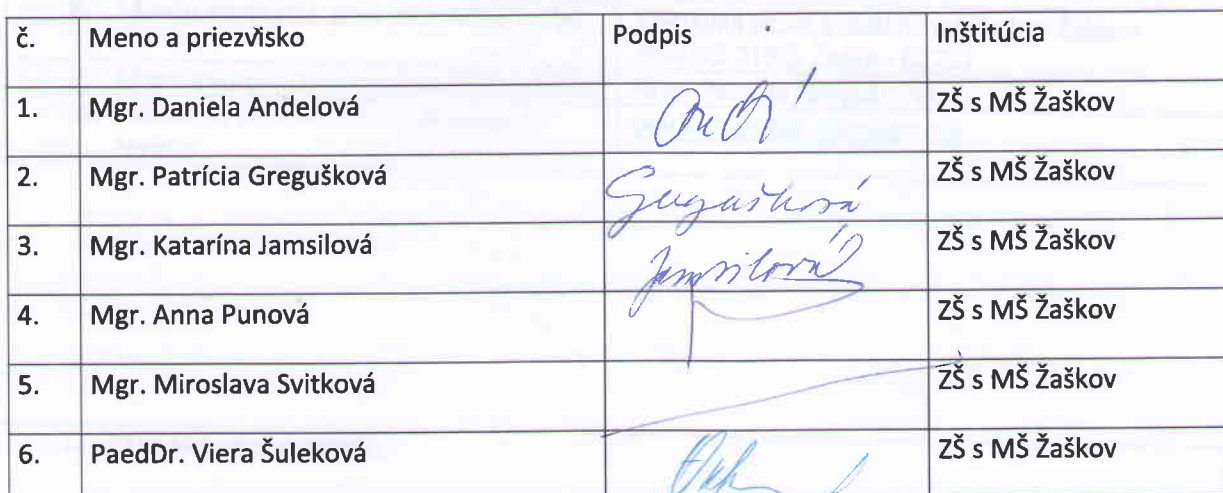 č. Meno a priezvisko Podpis Inštitúcia
1. Mgr. Daniela Anđelová ZŠ s MŠ Žaškov
2. Mgr. Patrícia Gregušková Gregušková ZŠ s MŠ Žaškov
3. Mgr. Katarína Jamsilová Jamsilová ZŠ s MŠ Žaškov
4. Mgr. Anna Punová ZŠ s MŠ Žaškov
5. Mgr. Miroslava Svitková ZŠ s MŠ Žaškov
6. PaedDr. Viera Šuleková ZŠ s MŠ Žaškov